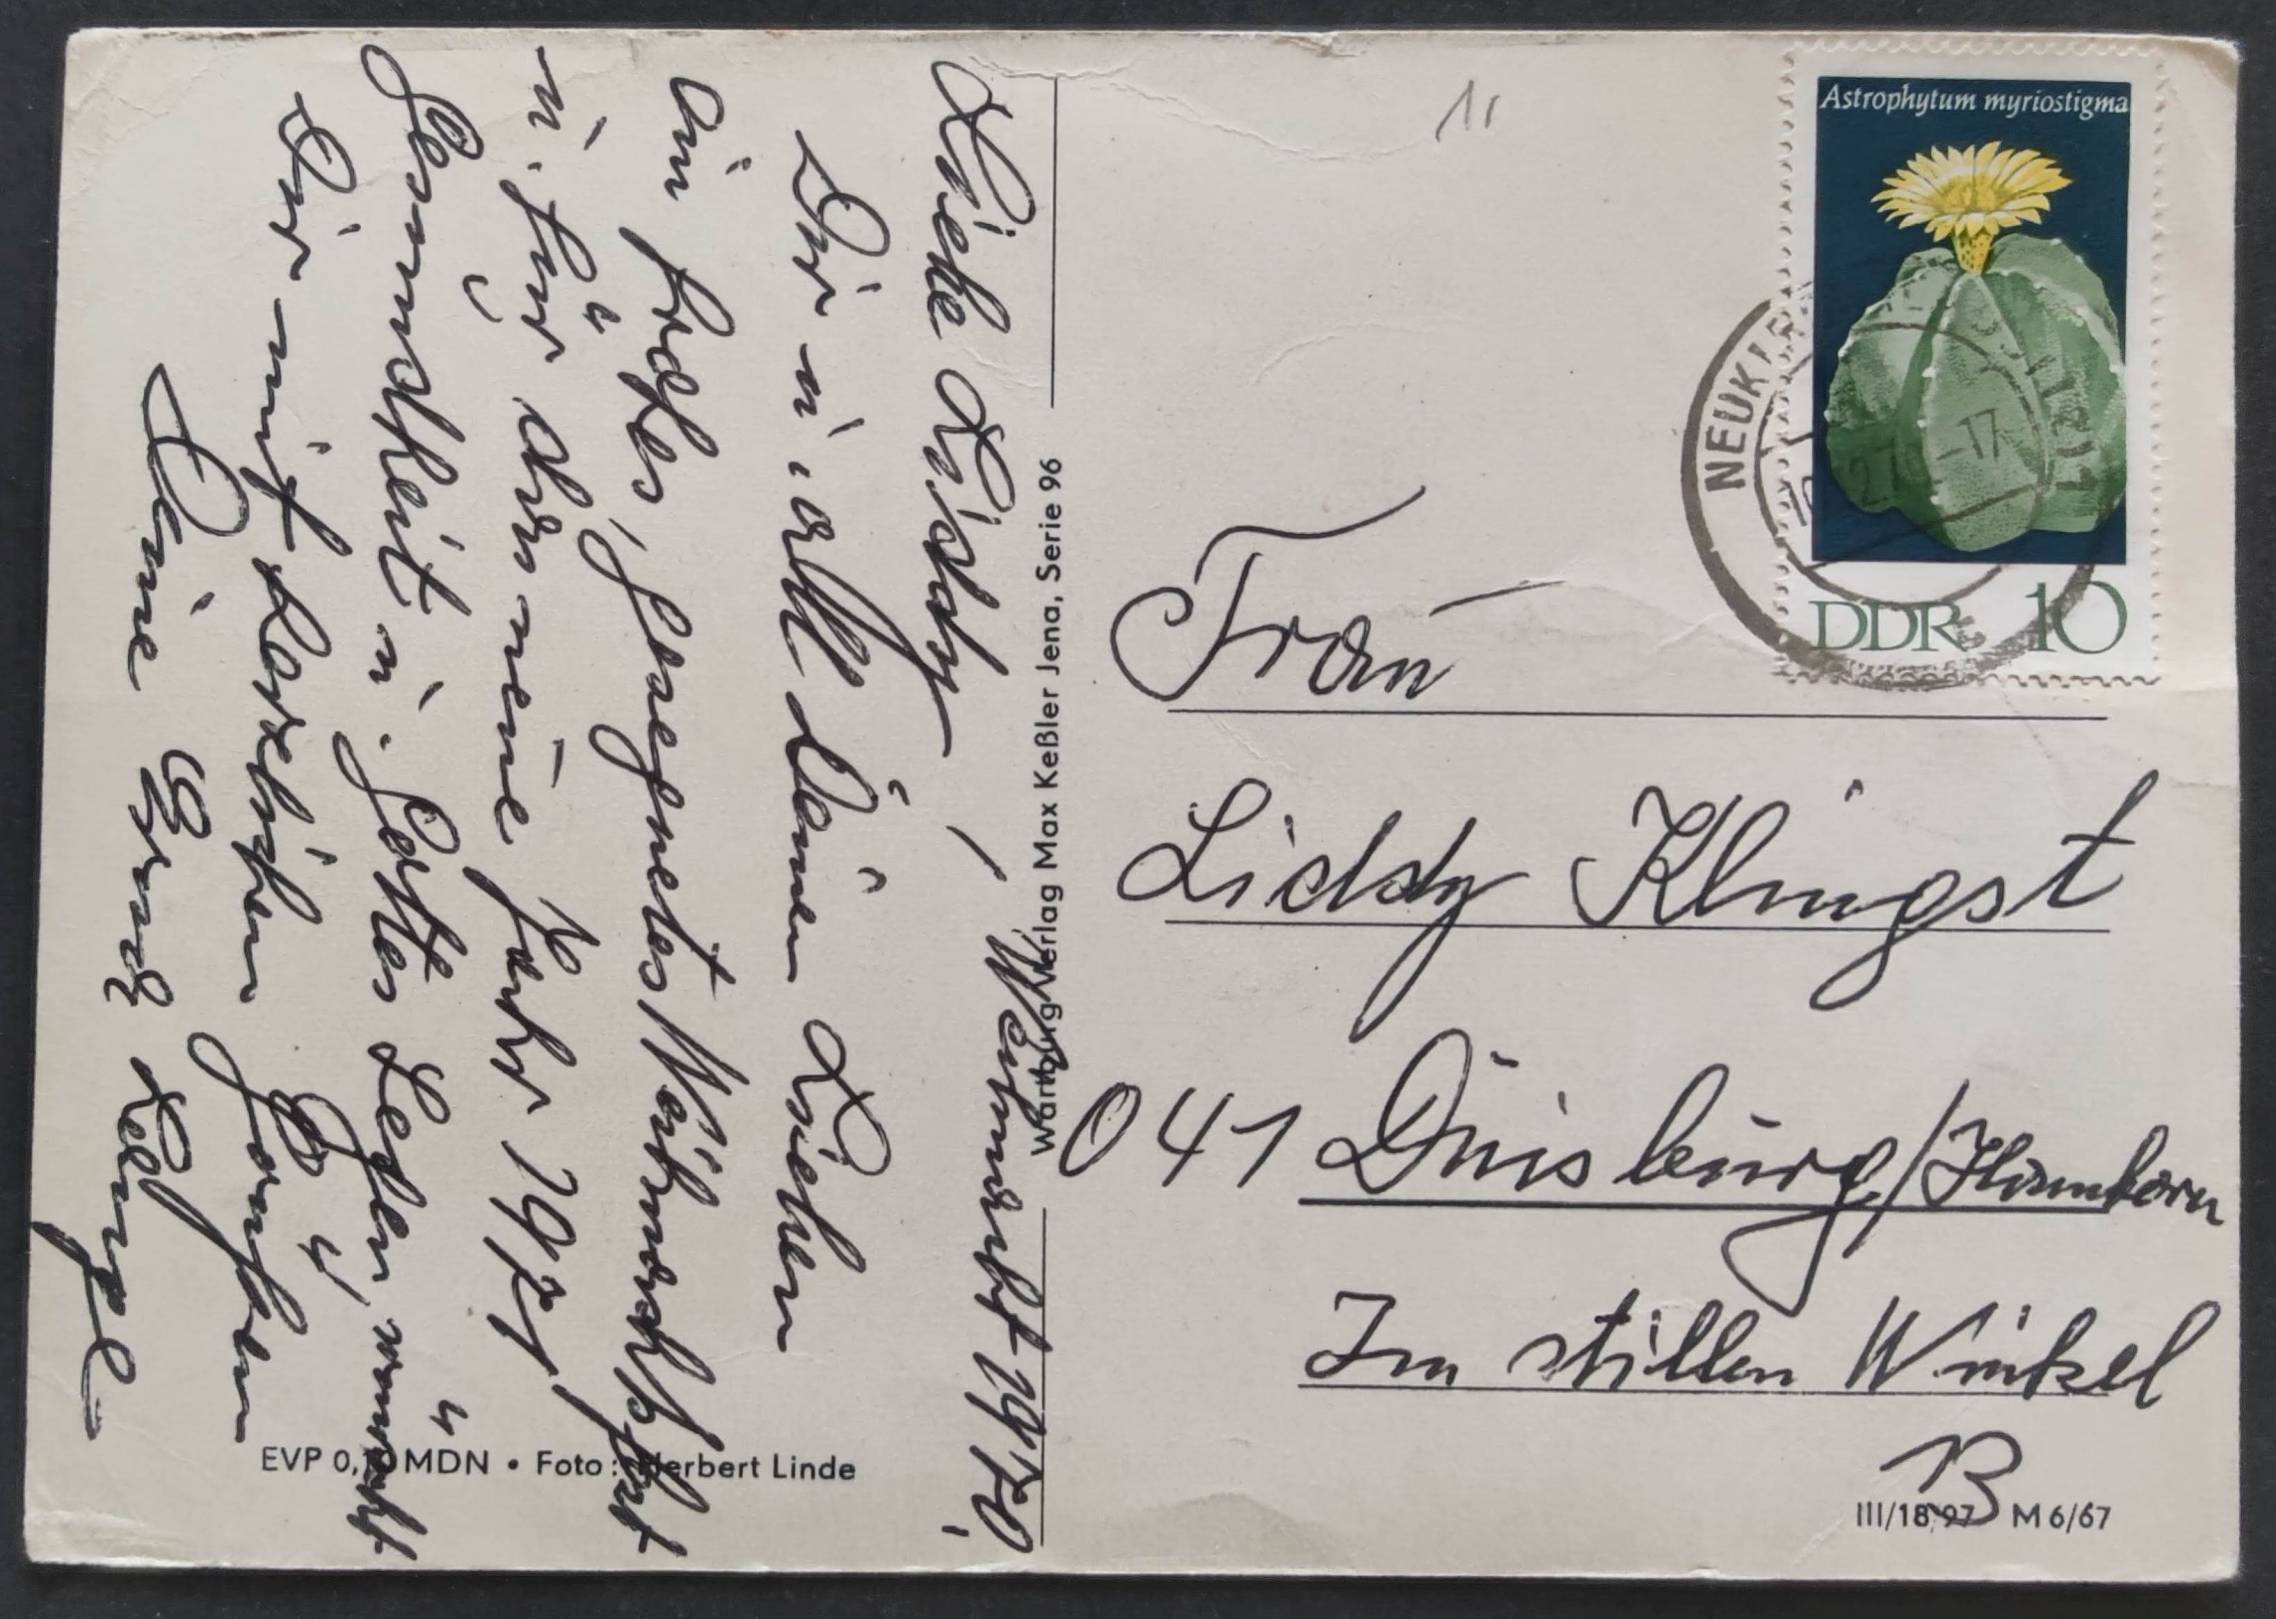 Weihnacht 1970.
Liebe Liddy,
Dir u. all Deinen Lieben
ein frohes, gesegnetes Weihnachtsfest
u. für das neue Jahr 1971
Gesundheit u. Gottes Segen, wünscht
Dir mit herzlichen Grüßen
Deine
Wartburg-Verlag Max Keßler Jena, Serie 96
EVP 0, MDN • Foto: Herbert Linde
11
Astrophytum myriostigma
DDR 10
-17
Frau
Liddy Klingst
041 Duisburg/Hamborn
Im stillen Winkel
13
III/18/97 M 6/67